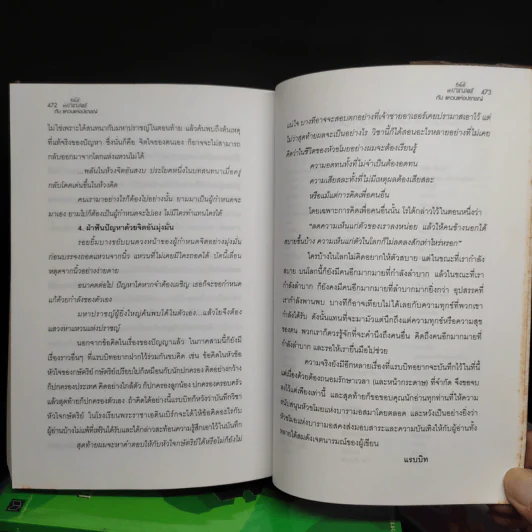 472
กับ แหวนแห่งปราชญ์
ไม่ใช่เพราะได้สนทนากับมหาปราชญ์ในตอนท้าย แล้วค้นพบถึงต้นเหตุ
ที่แท้จริงของปัญหา ซึ่งนั่นก็คือ จิตใจของตนเอง ก็อาจจะไม่สามารถ
กลับออกมาจากโลกแห่งแหวนได้
...พลันในห้วงจิตอันสงบ ประโยคหนึ่งในบทสนทนาเมื่อครู่
กลับโดดเด่นขึ้นในห้วงคิด
คนเรามาอย่างไรก็ต้องไปอย่างนั้น ยามมาเป็นผู้กำหนดจะ
มาเอง ยามไปก็ต้องเป็นผู้กำหนดจะไปเอง ไม่มีใครทำแทนใครได้
4. ฝ่าฟันปัญหาด้วยจิตอันมุ่งมั่น
รอยยิ้มบางขยับบนดวงหน้าของผู้กำหนดจิตอย่างมุ่งมั่น
ก่อนบรรจงถอดแหวนที่นิ้วก้อย แหวนที่ไม่เคยมีใครถอดได้ บัดนี้เลื่อน
หลุดจากนิ้วอย่างง่ายดาย
อนาคตต่อไป ปัญหาใดหากจำต้องเผชิญ เธอก็จะขอกำหนด
แก้ด้วยกำลังของตัวเอง
มหาปราชญ์ผู้ยิ่งใหญ่ค้นพบได้ในตัวเอง...แล้วใยจึงต้อง
แสวงหาแหวนแห่งปราชญ์
นอกจากข้อคิดในเรื่องของปัญญาแล้ว ในภาคสามนี้ก็ยังมี
เรื่องราวอื่นๆ ที่แรบบิทอยากฝากไว้ร่วมกันขบคิด เช่น ข้อคิดในหัวข้อ
หัวใจของกษัตริย์
ก็ปกครองประเทศ คิดอย่างไกลสัตว์ ก็ปกครองลูกน้อง ปกครองครอบครัว
แล้วสุดท้ายก็ปกครองตัวเอง
หัวใจกษัตริย์ ในโรงเรียนพระราชาเอดินเบิร์กจะได้ให้ข้อคิดอะไรกับ
ผู้อ่านบ้างไม่แพ้ที่เฟรินได้รับและได้กล่าวสะท้อนความรู้สึกเอาไว้ในบันทึก
สุดท้ายผมจะหาคำตอบให้กับหัวใจกษัตริย์ได้หรือไม่ก็ยังไม่
473
กับ แหวนแห่งปราชญ์
แน่ใจ บางทีอาจจะสอบตกอย่างที่เจ้าชายอาเธอร์เคยปรามาสเอาไว้ แต่
ไม่ว่าสุดท้ายผลจะเป็นอย่างไร วิชานี้ก็ได้สอนอะไรหลายอย่างที่ไม่เคย
คิดว่าในชีวิตของหัวขโมยอย่างผมจะต้องเรียนรู้
ความอดทนทั้งที่ไม่จำเป็นต้องอดทน
ความเสียสละทั้งที่ไม่มีเหตุผลต้องเสียสละ
หรือแม้แต่การคิดเพื่อคนอื่น
โดยเฉพาะการคิดเพื่อคนอื่นนั้น โรได้กล่าวไว้ในตอนหนึ่งว่า
"ลดความเห็นแก่ตัวของเราลงหน่อย แล้วให้คนข้างนอกได้
สบายขึ้นบ้าง ความเห็นแก่ตัวในโลกก็ไม่ลดลงสักเท่าไหร่หรอก"
ใครบ้างในโลกไม่คิดอยากให้ตัวสบาย แต่ในขณะที่เรากำลัง
สบาย บนโลกนี้ก็ยังมีคนอีกมากมายที่กำลังลำบาก แล้วในขณะที่เรา
กำลังลำบาก ก็ยังคงมีคนอีกมากมายที่ลำบากมากยิ่งกว่า อุปสรรคที่
เรากำลังพานพบ บางทีก็อาจเทียบไม่ได้เลยกับความทุกข์ที่พวกเขา
กำลังได้รับ ดังนั้นแทนที่จะมามัวแต่นึกถึงแต่ความทุกข์หรือความสุข
ของตน พวกเราก็ควรรู้จักที่จะคำนึงถึงคนอื่น คิดถึงคนอีกมากมายที่
กำลังลำบาก และรอให้เรายื่นมือไปช่วย
ความจริงยังมีอีกหลายเรื่องที่แรบบิทอยากจะบันทึกไว้ในที่นี้
แต่เนื่องด้วยต้องถนอมรักษาเวลา (และหน้ากระดาษ) ที่จำกัด จึงขอจบ
ลงไว้แต่เพียงเท่านี้ และสุดท้ายก็ขอขอบคุณนักอ่านทุกท่านที่ให้ความ
สนับสนุนหัวขโมยแห่งบารามอสมาโดยตลอด และหวังเป็นอย่างยิ่งว่า
หัวขโมยแห่งบารามอสคงส่งมอบสาระและความบันเทิงให้กับผู้อ่านทั้ง
หลายได้สมดังเจตนารมณ์ของผู้เขียน
แรบบิท